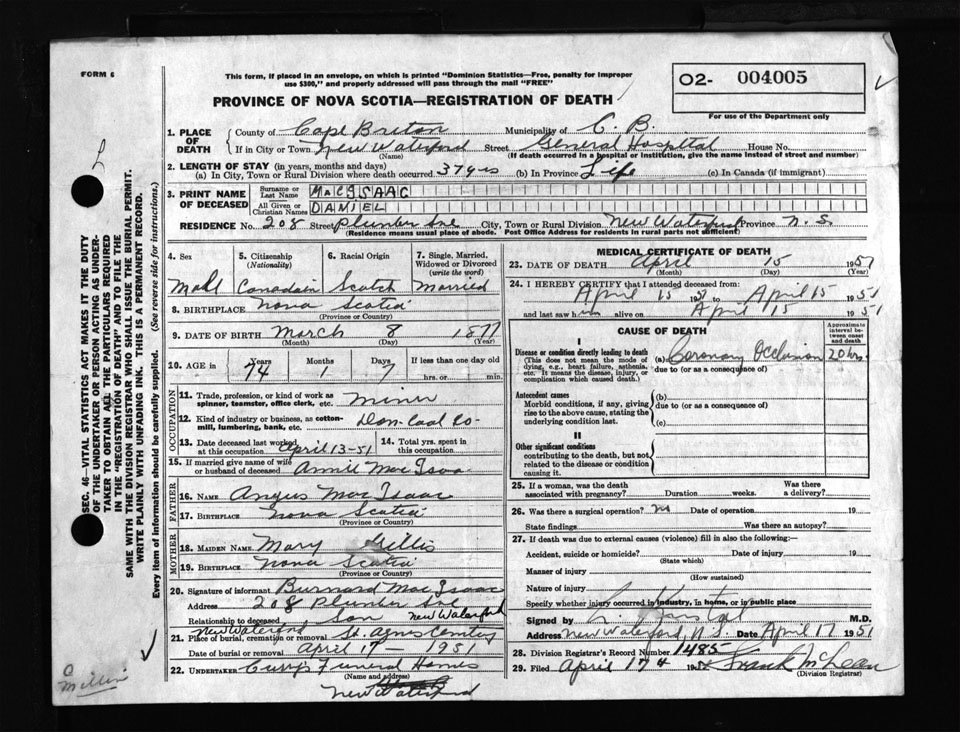 FORM 6
This form, if placed in an envelope, on which is printed "Dominion Statistics—Free, penalty for improper
use $300," and properly addressed will pass through the mail "FREE"
O2- 004005
PROVINCE OF NOVA SCOTIA—REGISTRATION OF DEATH
For use of the Department only
1. PLACE OF DEATH { County of Cape Breton Municipality of C. B.
If in City or Town New Waterford Street General Hospital House No.
(Name) (If death occurred in a hospital or institution, give the name instead of street and number)
2. LENGTH OF STAY (in years, months and days)
(a) In City, Town or Rural Division where death occurred 37 yrs (b) In Province Life (c) In Canada (if immigrant)
3. PRINT NAME OF DECEASED { Surname or Last Name MACISAAC
All Given or Christian Names DANIEL
RESIDENCE No. 208 Street Plumber Ave City, Town or Rural Division New Waterford Province N. S.
(Residence means usual place of abode. Post Office Address for residents in rural parts not sufficient)
4. Sex 5. Citizenship (Nationality) 6. Racial Origin 7. Single, Married, Widowed or Divorced (write the word)
Male Canadain Scotch Married
8. BIRTHPLACE Nova Scotia
(Province or Country)
9. DATE OF BIRTH March 8 1877
(Month) (Day) (Year)
10. AGE in { Years Months Days If less than one day old
74 1 7 hrs. or min.
OCCUPATION
11. Trade, profession, or kind of work as spinner, teamster, office clerk, etc. Miner
12. Kind of industry or business, as cotton-mill, lumbering, bank, etc. Dom Coal Co-
13. Date deceased last worked at this occupation April 13-51 14. Total yrs. spent in this occupation
15. If married give name of wife or husband of deceased Annie Mac Isaac
FATHER
16. NAME Angus Mac Isaac
17. BIRTHPLACE Nova Scotia
(Province or Country)
MOTHER
18. MAIDEN NAME Mary Gillis
19. BIRTHPLACE Nova Scotia
(Province or Country)
20. Signature of informant Burnard Mac Isaac
Address 208 Plumber Ave
New Waterford
Relationship to deceased Son
New Waterford
21. Place of burial, cremation or removal St. Agnes Cemetery
Date of burial or removal April 17 — 1951
22. UNDERTAKER Curry's Funeral Homes
(Name and address)
New Waterford
MEDICAL CERTIFICATE OF DEATH
23. DATE OF DEATH April 15 1951
(Month) (Day) (Year)
24. I HEREBY CERTIFY that I attended deceased from:
April 15 1951 to April 15 1951
and last saw him alive on April 15 1951
CAUSE OF DEATH
Approximate interval between onset and death
I
Disease or condition directly leading to death (a) Coronary Occlusion 20 hrs.
(This does not mean the mode of dying, e.g., heart failure, asthenia, etc. It means the disease, injury, or complication which caused death.)
due to (or as a consequence of)
Antecedent causes (b)
Morbid conditions, if any, giving rise to the above cause, stating the underlying condition last.
due to (or as a consequence of)
(c)
II
Other significant conditions
contributing to the death, but not related to the disease or condition causing it.
25. If a woman, was the death associated with pregnancy? Duration weeks. Was there a delivery?
26. Was there a surgical operation? no Date of operation 19
State findings Was there an autopsy?
27. If death was due to external causes (violence) fill in also the following:
Accident, suicide or homicide? Date of injury 19
(State which)
Manner of injury
(How sustained)
Nature of injury
Specify whether injury occurred in industry, in home, or in public place
Signed by M.D.
Address New Waterford, N.S. Date April 17 1951
28. Division Registrar's Record Number 1485
29. Filed April 17th 1951 Frank McLean
(Division Registrar)
SEC. 46—VITAL STATISTICS ACT MAKES IT THE DUTY
OF THE UNDERTAKER OR PERSON ACTING AS UNDER-
TAKER TO OBTAIN ALL THE PARTICULARS REQUIRED
IN THE "REGISTRATION OF DEATH" AND TO FILE THE
SAME WITH THE DIVISION REGISTRAR WHO SHALL ISSUE THE BURIAL PERMIT.
WRITE PLAINLY WITH UNFADING INK. THIS IS A PERMANENT RECORD.
Every item of information should be carefully supplied. (See reverse side for instructions.)